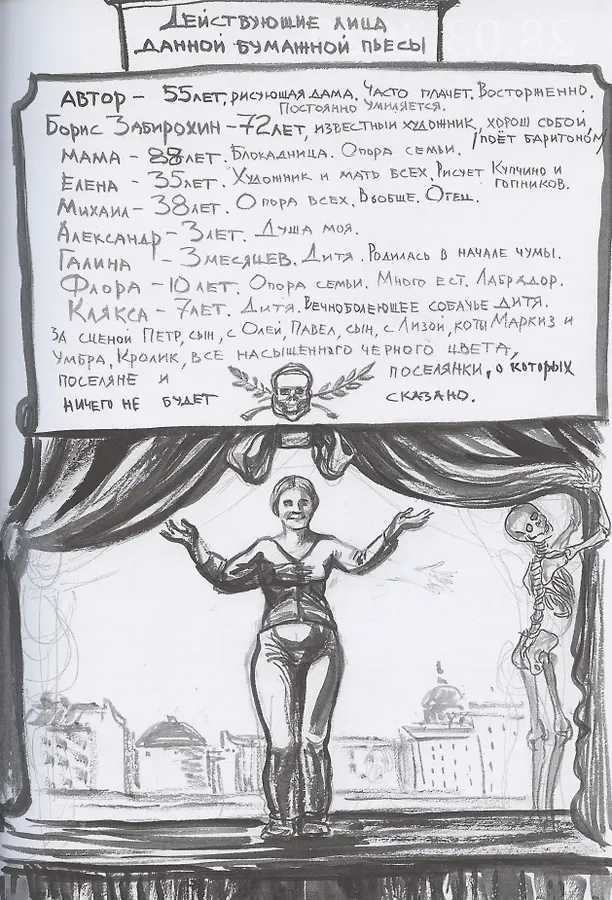 Действующие лица
данной бумажной пьесы
Автор – 55 лет, рисующая дама. Часто плачет. Восторженно.
Постоянно умиляется.
Борис Забирохин – 72 лет, известный художник, хорош собой
/поёт баритоном
Мама – 88 лет. Блокадница. Опора семьи.
Елена – 35 лет. Художник и мать всех. Рисует Купчино и
гопников.
Михаил – 38 лет. Опора всех. Вообще. Отец.
Александр – 3 лет. Душа моя.
Галина – 3 месяцев. Дитя. Родилась в начале чумы.
Флора – 10 лет. Опора семьи. Много ест. Лабрадор.
Клякса – 7 лет. Дитя. Вечноболеющее собачье дитя.
За сценой Петр, сын, с Олей, Павел, сын, с Лизой, коты Маркиз и
Умбра, Кролик, все насыщенного черного цвета,
поселяне и поселянки, о которых
ничего не будет сказано.